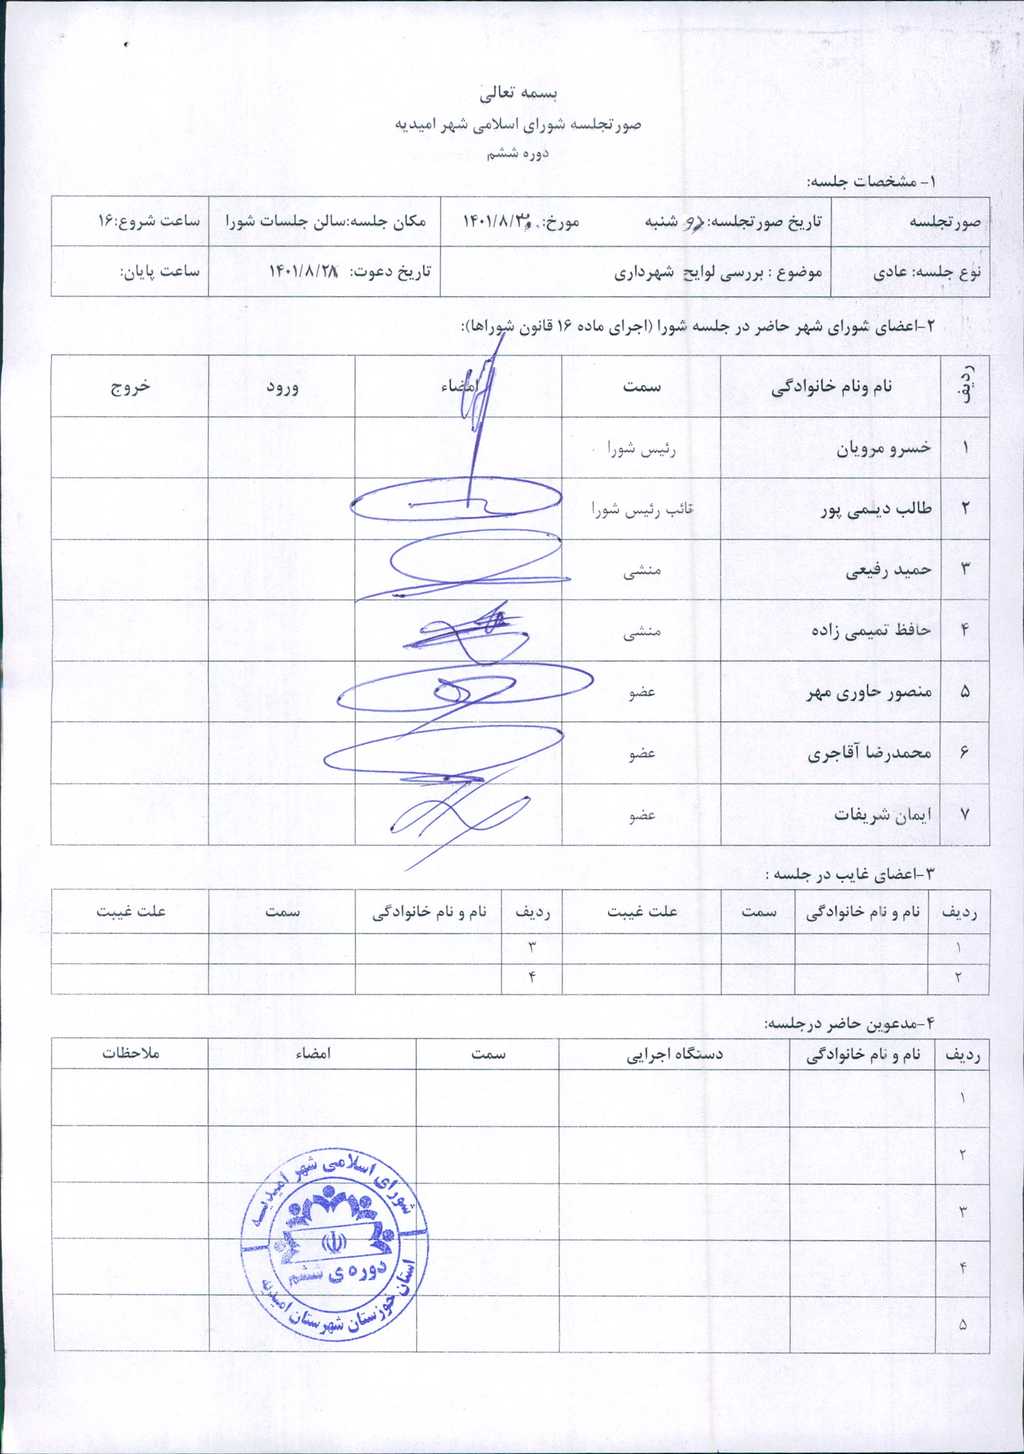 بسمه تعالی
صورتجلسه شورای اسلامی شهر امیدیه
دوره ششم
۱- مشخصات جلسه:
صورتجلسه تاریخ صورتجلسه: شنبه مورخ: ۱۴۰۱/۸/۳۰ مکان جلسه:سالن جلسات شورا ساعت شروع:۱۶
نوع جلسه: عادی موضوع : بررسی لوایح شهرداری تاریخ دعوت: ۱۴۰۱/۸/۲۸ ساعت پایان:
۲-اعضای شورای شهر حاضر در جلسه شورا (اجرای ماده ۱۶ قانون شوراها):
ردیف نام ونام خانوادگی سمت امضاء ورود خروج
۱ خسرو مرویان رئیس شورا
۲ طالب دیـمی پور نائب رئیس شورا
۳ حمید رفیعی منشی
۴ حافظ تمیمی زاده منشی
۵ منصور حاوری مهر عضو
۶ محمدرضا آقاجری عضو
۷ ایمان شریفات عضو
۳-اعضای غایب در جلسه :
ردیف نام و نام خانوادگی سمت علت غیبت ردیف نام و نام خانوادگی سمت علت غیبت
۱ ۳
۲ ۴
۴-مدعوین حاضر درجلسه:
ردیف نام و نام خانوادگی دستگاه اجرایی سمت امضاء ملاحظات
۱
۲
۳
۴
۵
شورای اسلامی شهر امیدیـه
دوره ی ششم
استان خوزستان شهرستان امیدیه